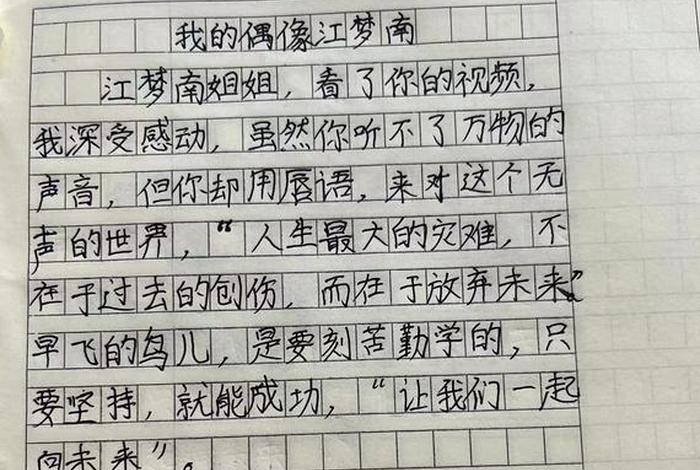 我的偶像江梦南
江梦南姐姐，看了你的视频，
我深受感动，虽然你听不了万物的
声音，但你却用唇语，来对这个无
声的世界，“人生最大的灾难，不
在于过去的创伤，而在于放弃未来”。
早飞的鸟儿，是要刻苦勤学的，只
要坚持，就能成功，“让我们一起
向未来”。